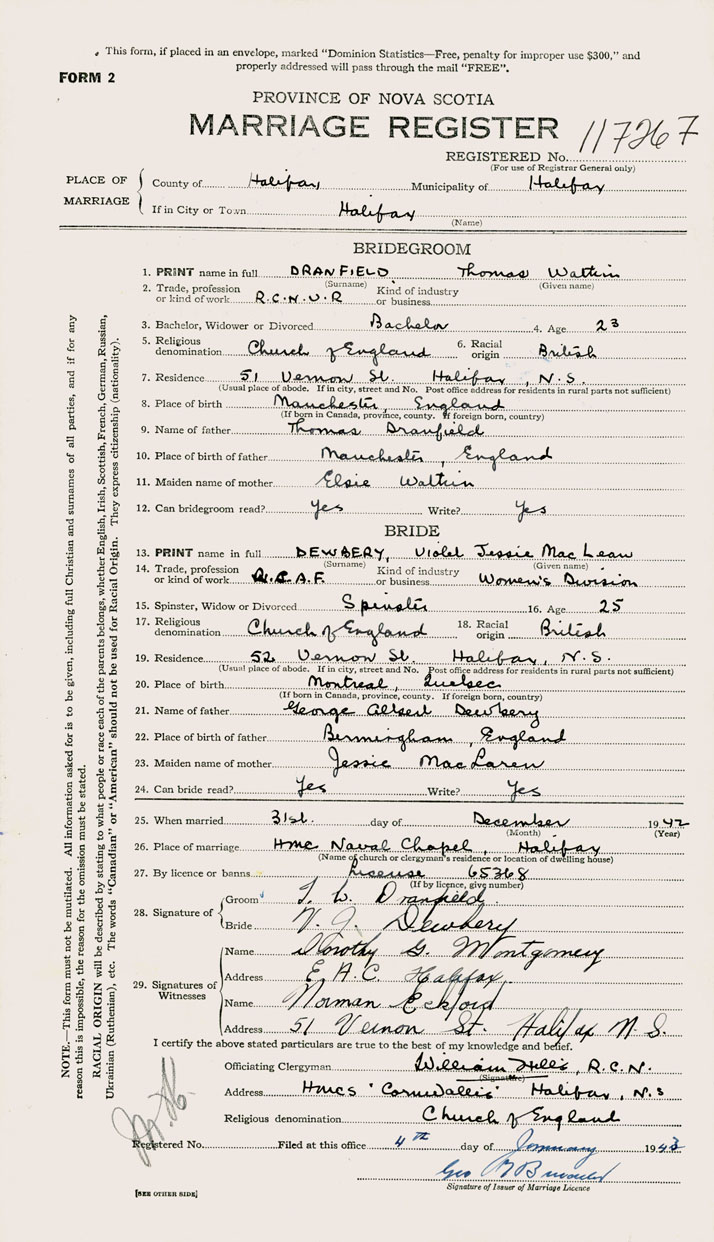 This form, if placed in an envelope, marked "Dominion Statistics—Free, penalty for improper use $300," and
properly addressed will pass through the mail "FREE".
FORM 2
PROVINCE OF NOVA SCOTIA
MARRIAGE REGISTER
REGISTERED No. 117267
(For use of Registrar General only)
PLACE OF MARRIAGE
County of Halifax Municipality of Halifax
If in City or Town Halifax
(Name)
BRIDEGROOM
1. PRINT name in full DRANFIELD Thomas Watkin
(Surname) (Given name)
2. Trade, profession or kind of work R.C.N.V.R Kind of industry or business
3. Bachelor, Widower or Divorced Bachelor 4. Age 23
5. Religious denomination Church of England 6. Racial origin British
7. Residence 51 Vernon St. Halifax, N.S.
(Usual place of abode. If in city, street and No. Post office address for residents in rural parts not sufficient)
8. Place of birth Manchester, England
(If born in Canada, province, county. If foreign born, country)
9. Name of father Thomas Dranfield
10. Place of birth of father Manchester, England
11. Maiden name of mother Elsie Watkin
12. Can bridegroom read? Yes Write? Yes
BRIDE
13. PRINT name in full DEWBERY, Violet Jessie MacLean
(Surname) (Given name)
14. Trade, profession or kind of work R.C.A.F. Kind of industry or business Women's Division
15. Spinster, Widow or Divorced Spinster 16. Age 25
17. Religious denomination Church of England 18. Racial origin British
19. Residence 52 Vernon St. Halifax, N.S.
(Usual place of abode. If in city, street and No. Post office address for residents in rural parts not sufficient)
20. Place of birth Montreal, Quebec
(If born in Canada, province, county. If foreign born, country)
21. Name of father George Albert Dewbery
22. Place of birth of father Bermingham, England
23. Maiden name of mother Jessie MacLaren
24. Can bride read? Yes Write? Yes
25. When married 31st. day of December 1942
(Month) (Year)
26. Place of marriage HMC Naval Chapel, Halifax
(Name of church or clergyman's residence or location of dwelling house)
27. By licence or banns License 65368
(If by licence, give number)
28. Signature of
Groom T. W. Dranfield
Bride V. J. Dewbery
29. Signatures of Witnesses
Name Dorothy G. Montgomery
Address E.A.C. Halifax
Name Norman Eckford
Address 51 Vernon St. Halifax N.S.
I certify the above stated particulars are true to the best of my knowledge and belief.
Officiating Clergyman William Hills, R.C.N.
(Signature)
Address HMCS 'Cornwallis' Halifax, N.S
Religious denomination Church of England
Registered No. Filed at this office 4th day of January 1943
Geo
Signature of Issuer of Marriage Licence
[SEE OTHER SIDE]
NOTE.—This form must not be mutilated. All information asked for is to be given, including full Christian and surnames of all parties, and if for any
reason this is impossible, the reason for the omission must be stated.
RACIAL ORIGIN will be described by stating to what people or race each of the parents belongs, whether English, Irish, Scottish, French, German, Russian,
Ukrainian (Ruthenian), etc. The words "Canadian" or "American" should not be used for Racial Origin. They express citizenship (nationality).